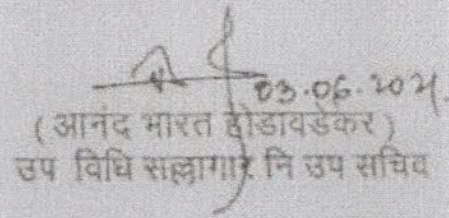 03.06.2021
( आनंद भारत होडावडेकर )
उप विधि सल्लागार नि उप सचिव